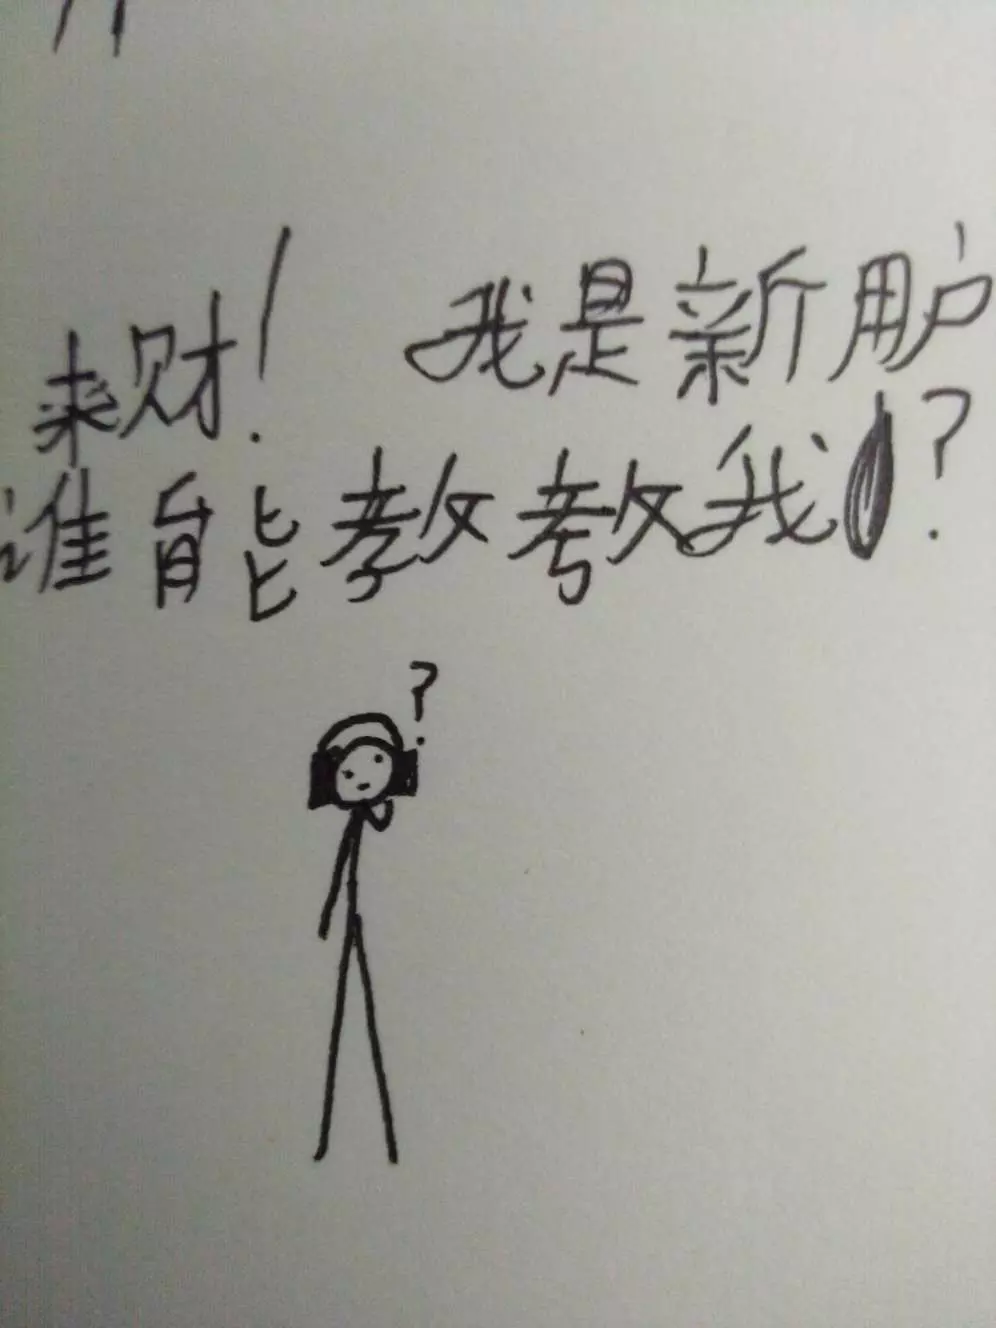 来财! 我是新用户
谁能教教我?
?